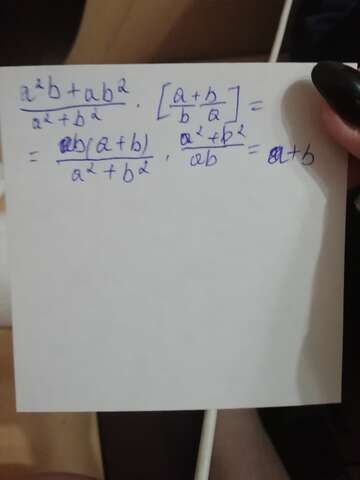 (a²b + ab²)/(a² + b²) · [a/b + b/a] =
= ab(a + b)/(a² + b²) · (a² + b²)/ab = a + b